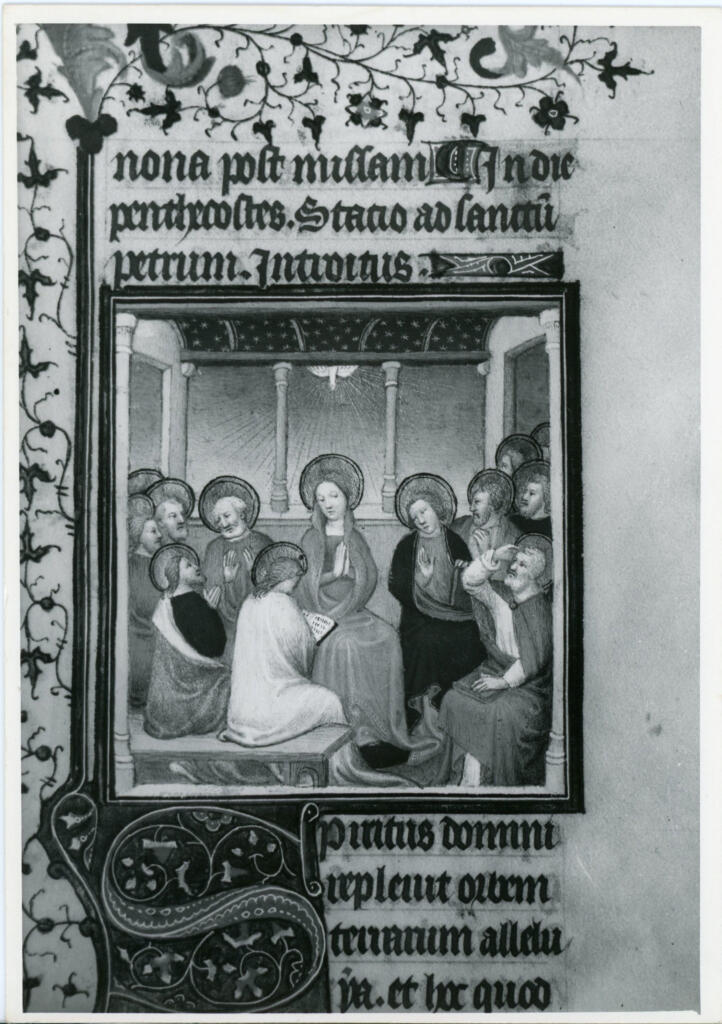 nona post missam In die
penthecostes. Stacio ad sanctū
petrum. Introitus.
Spiritus domini
repleuit orbem
terrarum allelu
ya. et hoc quod